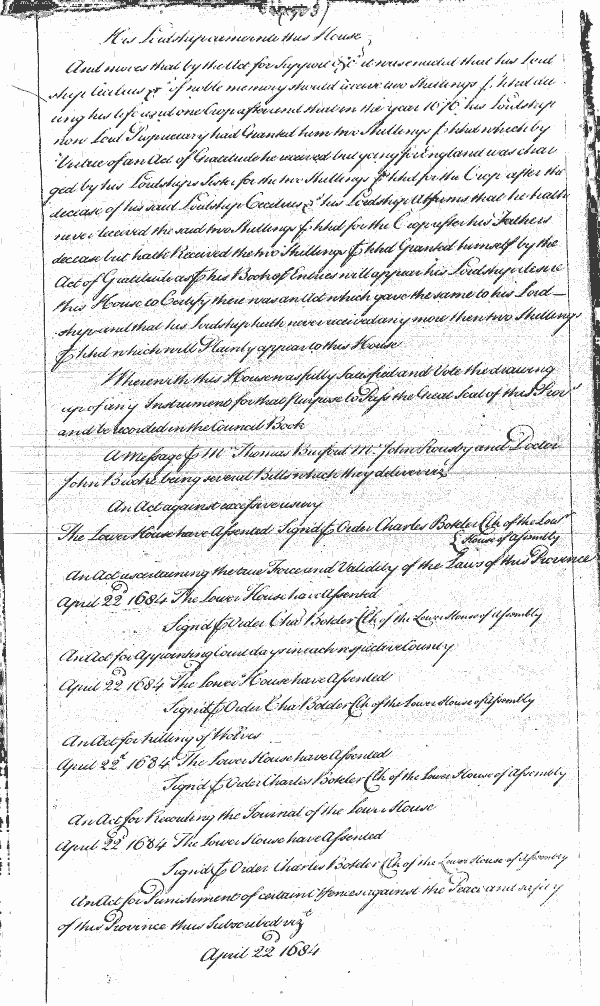 His Lordship remembers this House
And moves that by the Act for Support &c it was enacted that his Lord
ship Cecilius &c of noble memory should receive two Shillings ⅌ hhd du
ring his life and one Crop after and that in the year 1676 his Lordship
now Lord Proprietary had Granted him two Shillings ⅌ hhd which by
Virtue of an Act of Gratitude he received but going for England was char
ged by his Lordships Sister for the two Shillings ⅌ hhd for the Crop after the
decease of his said Lordship Cecilius &c his Lordship Affirms that he hath
never received the said two Shillings ⅌ hhd for the Crop after his Fathers
decease but hath Received the two Shillings ⅌ hhd Granted himself by the
Act of Gratitude as ⅌ his Book of Entries will appear his Lordship desire
this House to Certify there was an Act which gave the same to his Lord
ship and that his Lordship hath never received any more then two Shillings
⅌ hhd which will Plainly appear to this House
Wherewith this House was fully Satisfied and Vote the drawing
up of any Instrument for that Purpose to Pass the Great Seal of this Prov
and be recorded in the Council Book
A Message ⅌ Mr Thomas Burford Mr John Rousby and Doctor
John being several Bills which they deliver vizt
An Act against excessive usury
The Lower House have Assented Signd ⅌ Order Charles Boteler Clk of the Lowr
House of Assembly
An Act ascertaining the true Force and Validity of the Laws of this Province
April 22d 1684 The Lower House have Assented
Signd ⅌ Order Chas Boteler Clk of the Lower House of Assembly
An Act for Appointing Court days in each respective County
April 22d 1684 The Lower House have Assented
Signd ⅌ Order Chas Boteler Clk of the Lower House of Assembly
An Act for killing of Wolves
April 22d 1684 The Lower House have Assented
Signd ⅌ Order Charles Boteler Clk of the Lower House of Assembly
An Act for Recording the Journal of the Lower House
April 22d 1684 The Lower House have Assented
Signd ⅌ Order Charles Boteler Clk of the Lower House of Assembly
An Act for Punishment of certain Offences against the Peace and safety
of this Province thus Subscribed vizt
April 22d 1684